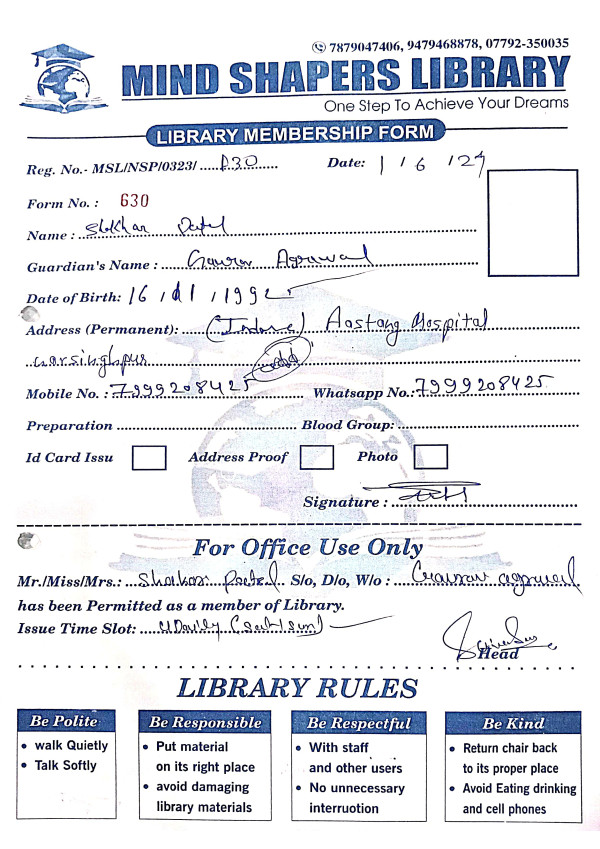 7879047406, 9479468878, 07792-350035
MIND SHAPERS LIBRARY
One Step To Achieve Your Dreams
LIBRARY MEMBERSHIP FORM
Reg. No.- MSL/NSP/0323/ Date: 1 / 6 / 24
Form No. : 630
Name : Shekhar Patel
Guardian's Name : Gaurav Agrawal
Date of Birth: 16 / 01 / 1992
Address (Permanent): (Indore) Aastang Hospital
Narsinghpur
Mobile No. : 7999208425 Whatsapp No.: 7999208425
Preparation Blood Group:
Id Card Issu Address Proof Photo
Signature :
For Office Use Only
Mr./Miss/Mrs.: Patel S/o, D/o, W/o : Gaurav agrawal
has been Permitted as a member of Library.
Issue Time Slot:
Head
LIBRARY RULES
Be Polite
• walk Quietly
• Talk Softly
Be Responsible
• Put material
on its right place
• avoid damaging
library materials
Be Respectful
• With staff
and other users
• No unnecessary
interruotion
Be Kind
• Return chair back
to its proper place
• Avoid Eating drinking
and cell phones